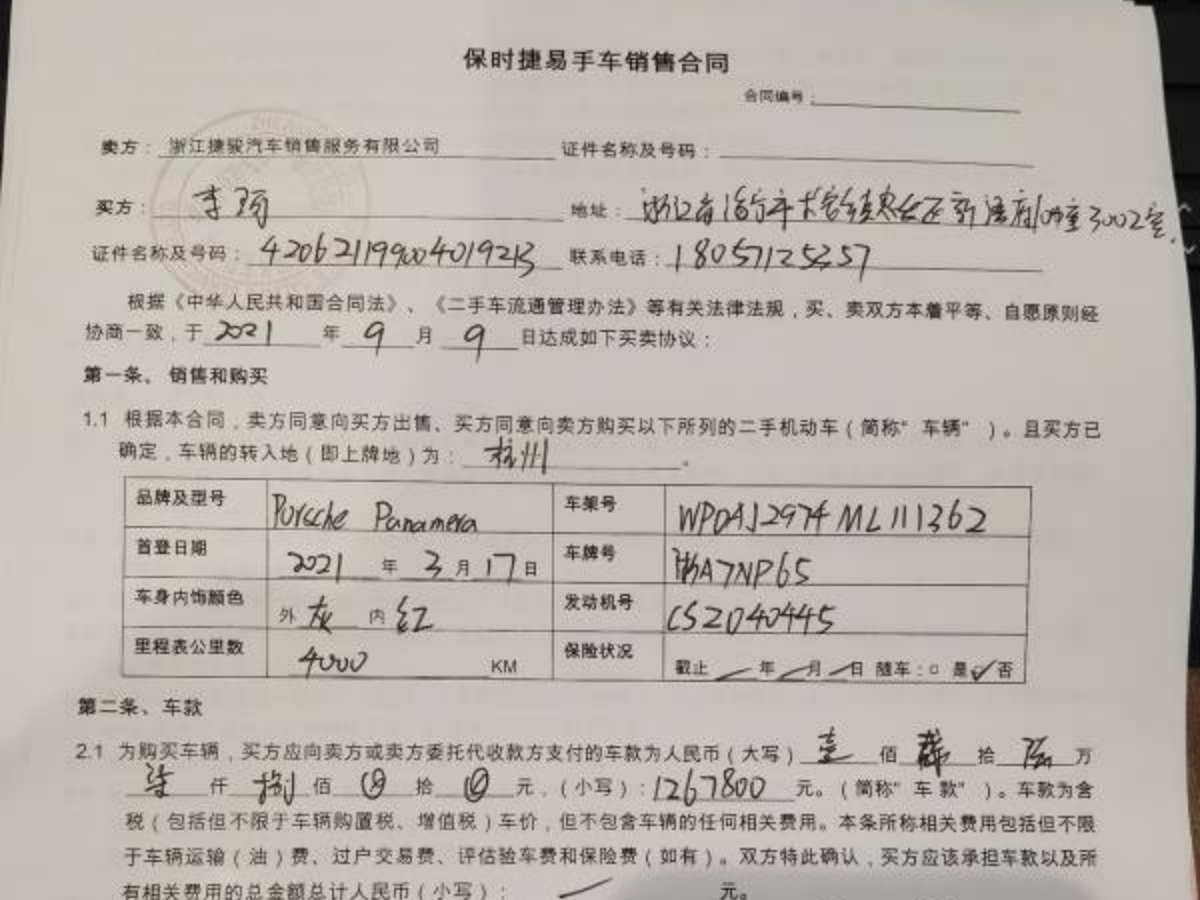 保时捷易手车销售合同
合同编号：
卖方：浙江捷骏汽车销售服务有限公司 证件名称及号码：
买方：李 地址：浙江省海宁市长安镇 3002室
证件名称及号码：420621199004019213 联系电话：18057125357
根据《中华人民共和国合同法》、《二手车流通管理办法》等有关法律法规，买、卖双方本着平等、自愿原则经
协商一致，于 2021 年 9 月 9 日达成如下买卖协议：
第一条、销售和购买
1.1 根据本合同，卖方同意向买方出售、买方同意向卖方购买以下所列的二手机动车（简称“车辆”）。且买方已
确定，车辆的转入地（即上牌地）为：杭州。
品牌及型号 Porsche Panamera 车架号 WP0AJ2974ML111362
首登日期 2021 年 3 月 17 日 车牌号 浙A7NP65
车身内饰颜色 外 灰 内 红 发动机号 CSZ040445
里程表公里数 4000 KM 保险状况 截止 年 月 日 随车：□ 是 ✓ 否
第二条、车款
2.1 为购买车辆，买方应向卖方或卖方委托代收款方支付的车款为人民币（大写）壹 佰 拾 万
柒 仟 捌 佰 拾 元，（小写）：1267800 元。（简称“车款”）。车款为含
税（包括但不限于车辆购置税、增值税）车价，但不包含车辆的任何相关费用。本条所称相关费用包括但不限
于车辆运输（油）费、过户交易费、评估验车费和保险费（如有）。双方特此确认，买方应该承担车款以及所
有相关费用的总金额总计人民币（小写）： 元。